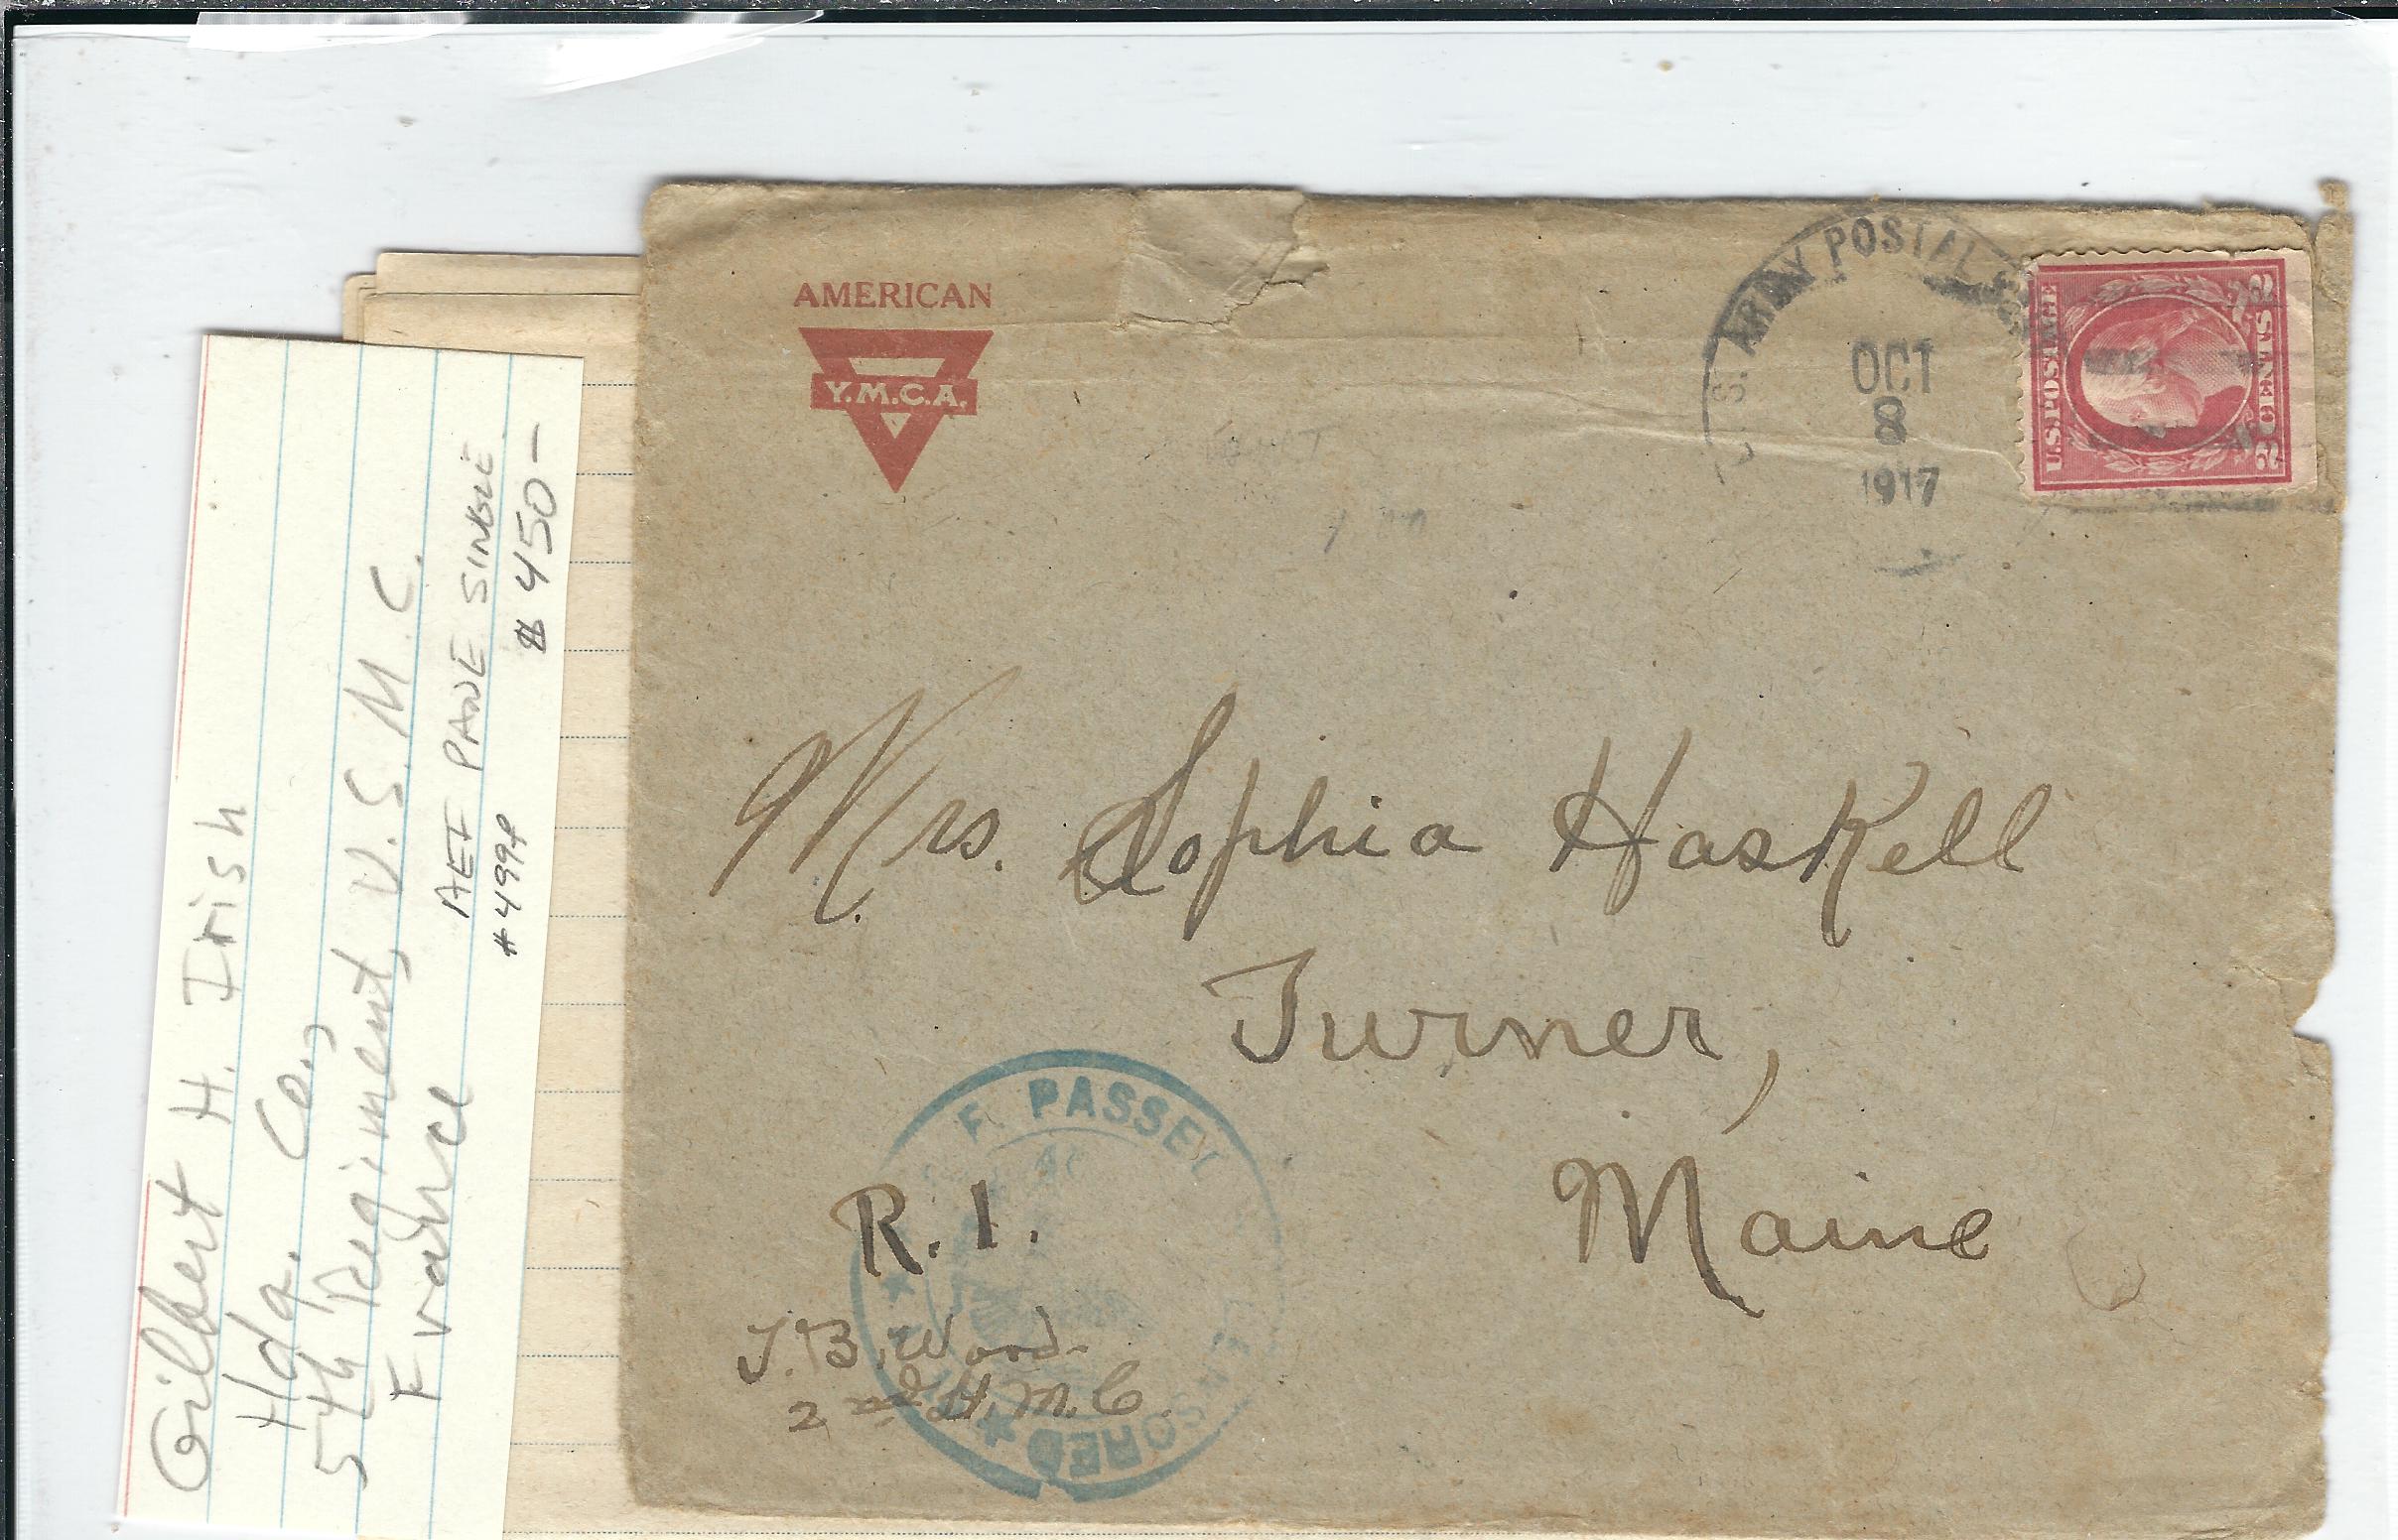 Gilbert H. Irish
Hdq. Co.,
5th Regiment, U.S.M.C.
France
AEF PANE SINGLE
#499f $450-
AMERICAN
Y.M.C.A.
U.S. ARMY POSTAL
OCT
8
1917
U.S. POSTAGE
2 CENTS 2
Mrs. Sophia Haskell
Turner,
Maine
R. 1.
F. PASSED
CENSORED
J. B. Ward
2